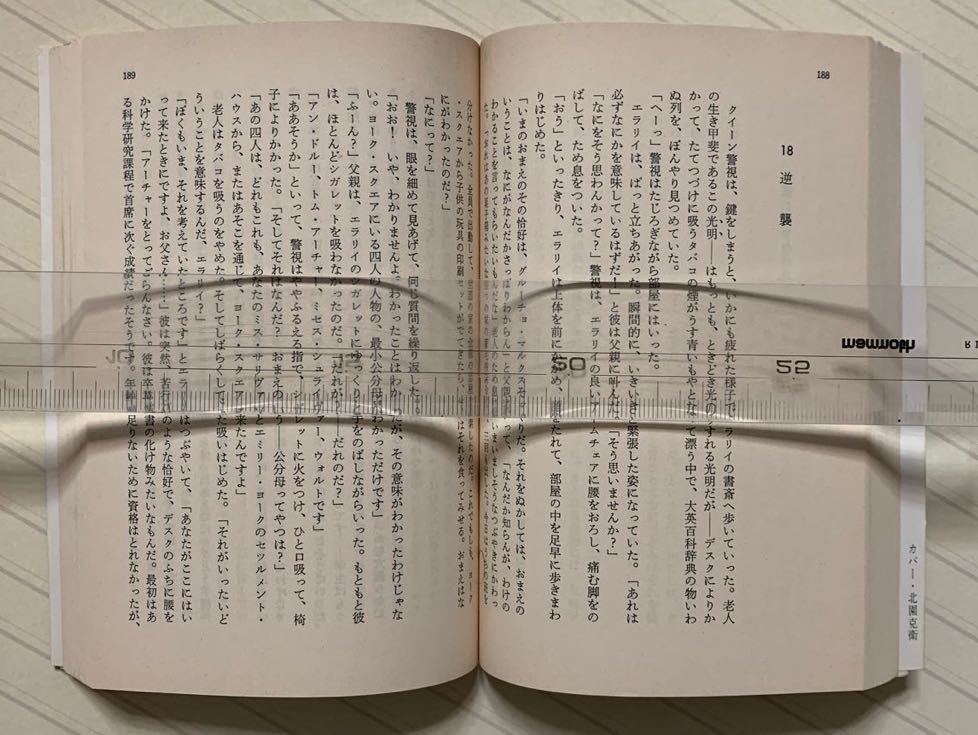 188
18 逆襲
クイーン警視は、鍵をしまうと、いかにも疲れた様子で、エラリイの書斎へ歩いていった。老人
の生き甲斐であるこの光明――はもっとも、ときどき光のうすれる光明だが――デスクによりか
かって、たてつづけに吸うタバコの煙がうす青いもやとなって漂う中で、大英百科辞典の物いわ
ぬ列を、ぼんやり見つめていた。
「へーっ」警視はたじろぎながら部屋にはいった。
エラリイは、ぱっと立ちあがった。瞬間的に、いきいきと緊張した姿になっていた。「あれは
必ずなにかを意味しているはずだ」と彼は父親に叫んだ。「そう思いませんか?」
「なにをそう思わんかって?」警視は、エラリイの良いアームチェアに腰をおろし、痛む脚をの
ばして、ため息をついた。
「おう」といったきり、エラリイは上体を前にかがめ、たれて、部屋の中を足早に歩きまわ
りはじめた。
「いまのおまえのその恰好は、グルーチョ・マルクスそっくりだ。それをぬかしては、おまえの
いうことは、なにがなんだかさっぱりわからん」と父親はいって、「なんだか知らんが、わけの
わかることを言ってもらいたいもんだな」老人のため息は、いまいましそうなつぶやきにかわっ
た。
分けなかった。全員で出動して、
・スクエアから子供の玩具の印刷セットがでてきたら、わしはそれを食ってみせる。おまえはな
にがわかったのだ?」
「なにって?」
189
警視は、眼を細めて見あげて、同じ質問を繰り返した。
「おお!いや、わかりませんよ。わかったことはわかったが、その意味がわかったわけじゃな
い。ヨーク・スクエアにいる四人の人物の、最小公分母がわかっただけです」
「ふーん?」父親は、エラリイのシガレットにゆっくりと手をのばしながらいった。もともと彼
は、ほとんどシガレットを吸わなかったのだ。「だれが?――だれのだ?」
「アン・ドルー、トム・アーチャー、ミセス・シュライヴァー、ウォルトです」
「ああそうか」といって、警視はややふるえる指で、シガレットに火をつけ、ひと口吸って、椅
子によりかかった。「そしてそれはなんだね?おまえのいう――公分母ってやつは?」
「あの四人は、どれもこれも、あなたのミス・サリヴァンとエミリー・ヨークのセツルメント・
ハウスから、またはあそこを通じて、ヨーク・スクエアに来たんですよ」
老人はタバコを吸うのをやめた。そしてしばらくしてまた吸いはじめた。「それがいったいど
ういうことを意味するんだ、エラリイ?」
「ぼくもいま、それを考えていたところです」とエラリイはつぶやいて、「あなたがここにはい
って来たときにですよ、お父さん……彼は突然、若者のような恰好で、デスクのふちに腰を
かけた。「アーチャーをとってごらんなさい。彼は卒業証書の化け物みたいなもんだ。最初はあ
る科学研究課程で首席に次ぐ成績だったそうです。年齢が足りないために資格はとれなかったが、
カバー・北園克衛
mammoth
50
52